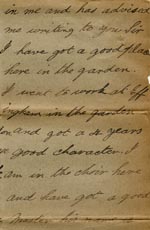 in me and has advised
me writing to you Sir
I have got a good place
here in the garden.
I went to work at Eff
ingham in the garden
and got a 2 years
good character. I
am in the choir here
and have got a good
Master his name is